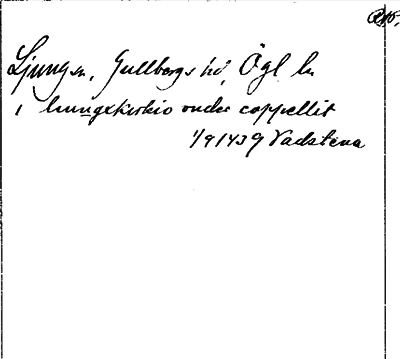 Ljung sn, Gullbergs hd, Ögl ln
i liungxkirkio under cappellit
1/9 1439 Vadstena